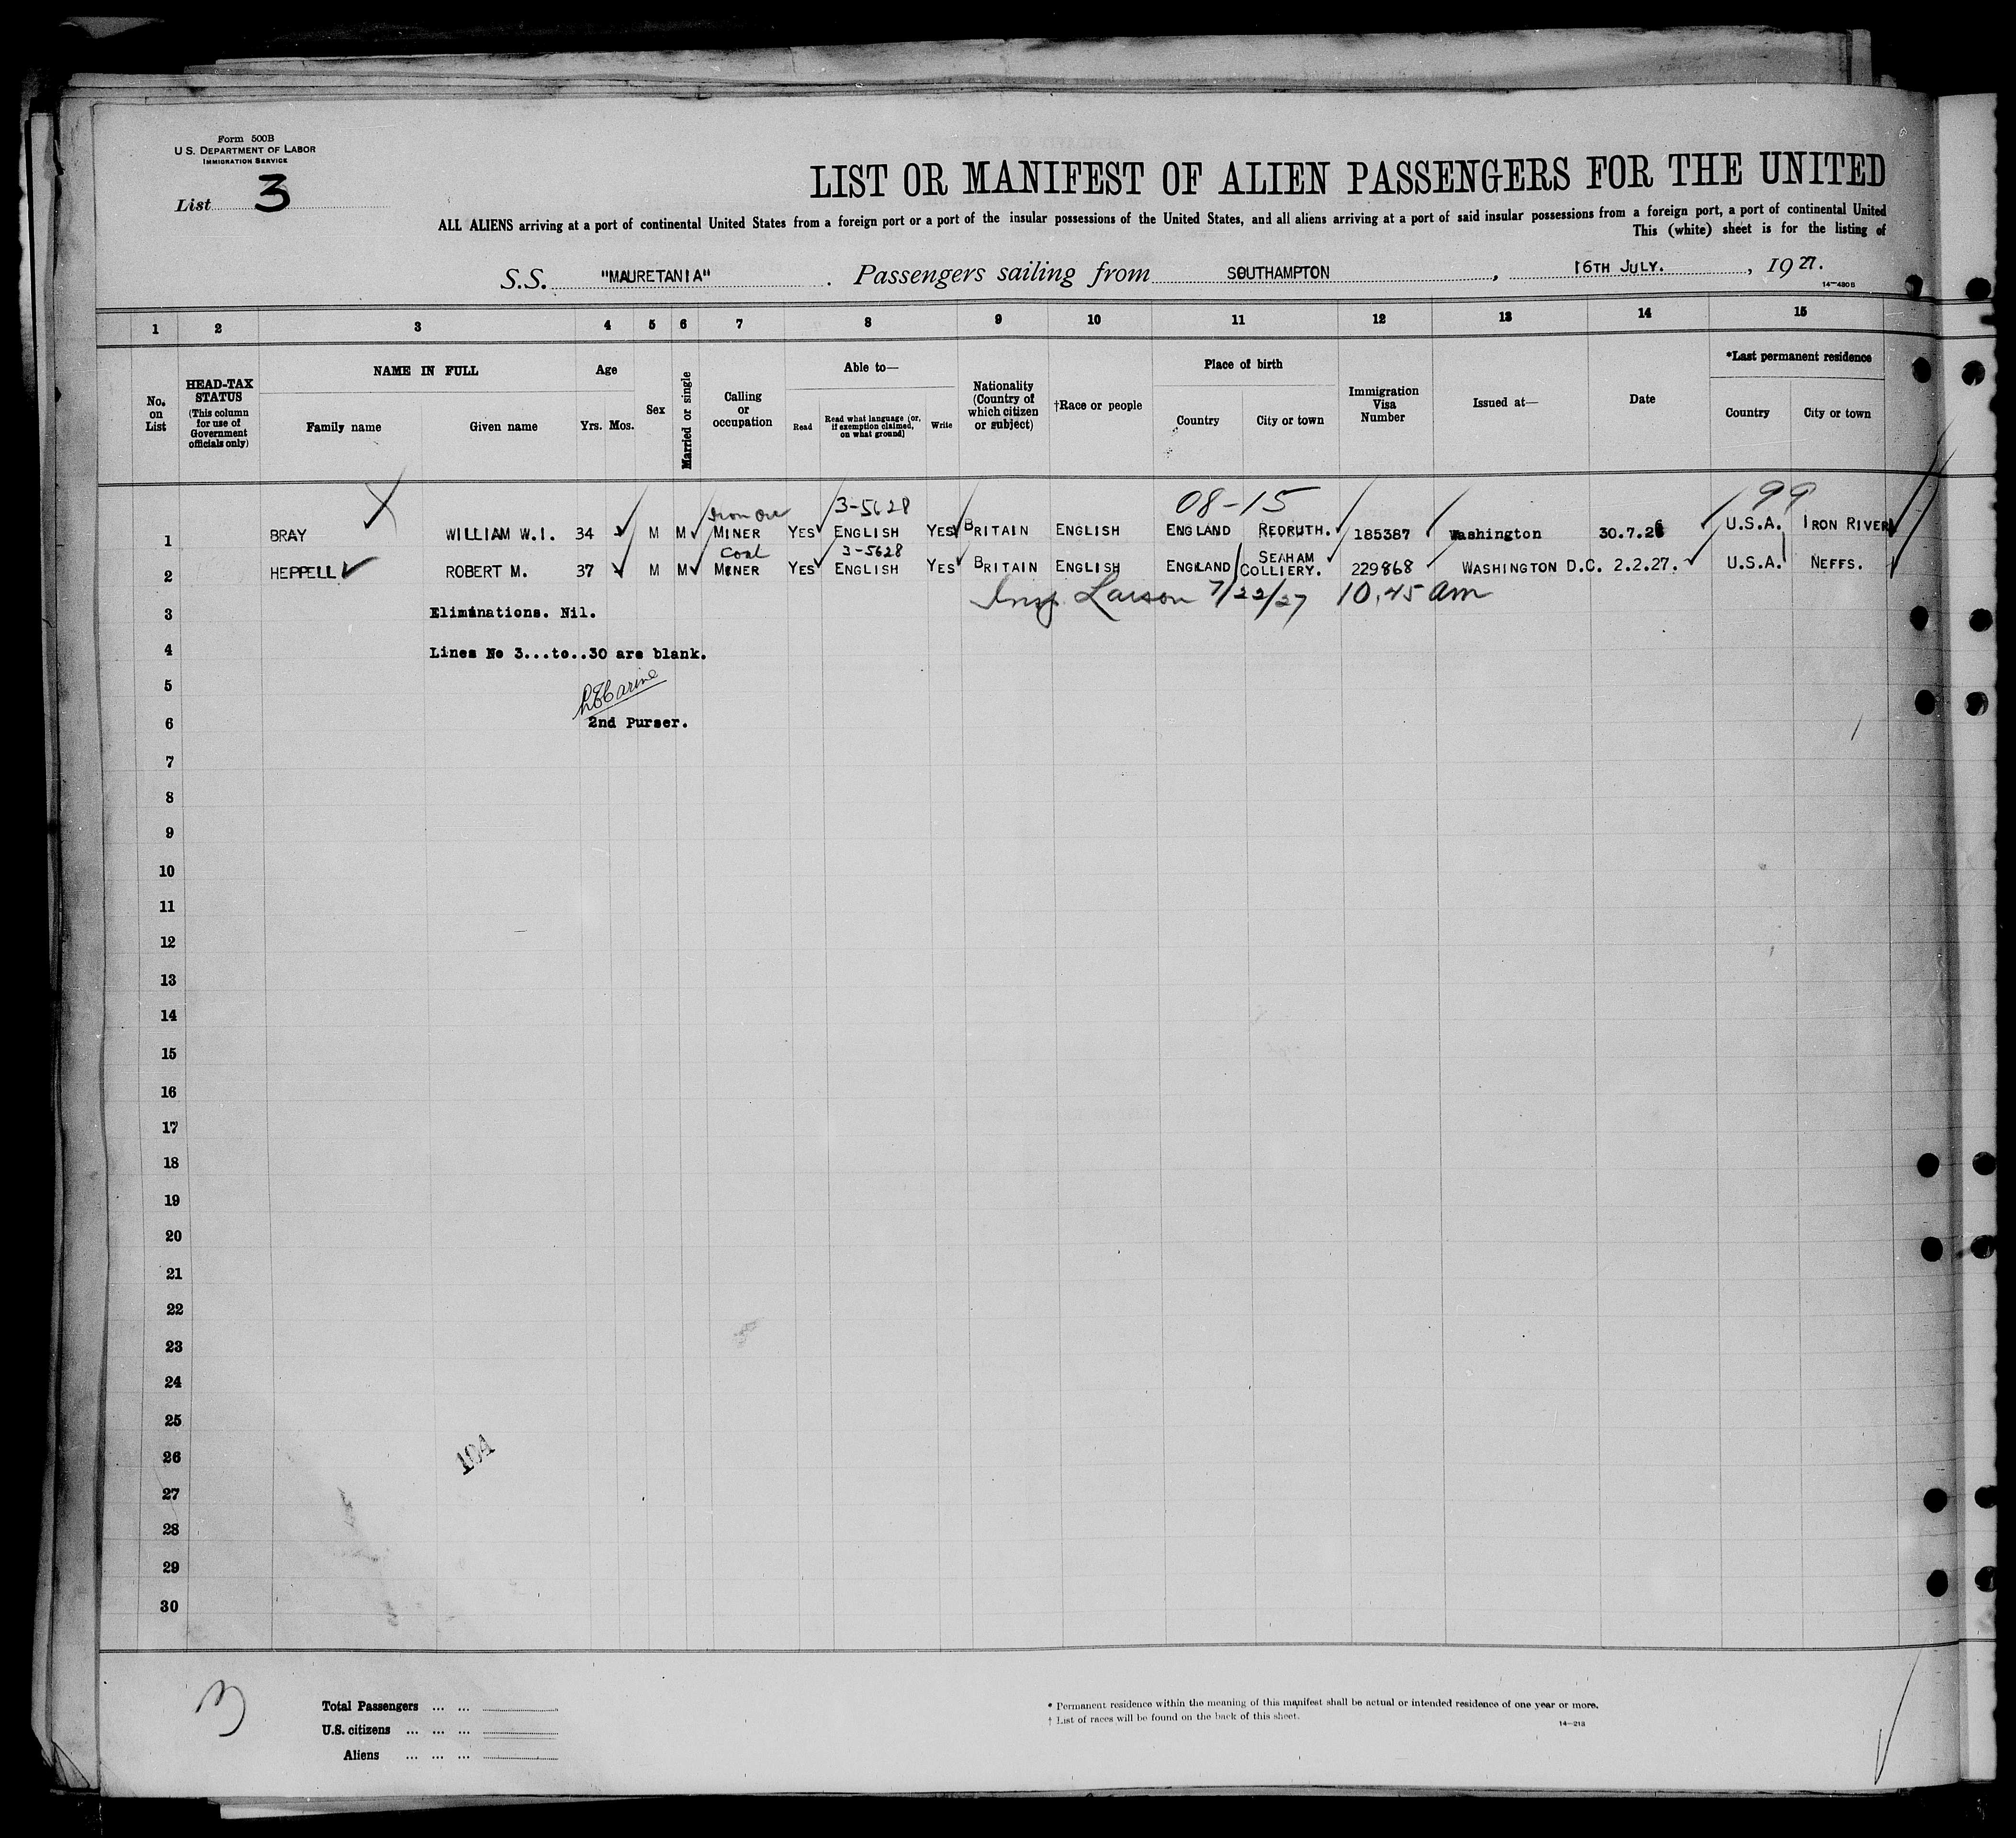 Form 500B
U S. DEPARTMENT OF LABOR
IMMIGRATION SERVICE
List 3
LIST OR MANIFEST OF ALIEN PASSENGERS FOR THE UNITED
ALL ALIENS arriving at a port of continental United States from a foreign port or a port of the insular possessions of the United States, and all aliens arriving at a port of said insular possessions from a foreign port, a port of continental United
This (white) sheet is for the listing of
S.S. "MAURETANIA" . Passengers sailing from SOUTHAMPTON , 16TH JULY. , 19 27.
14-480 B
1 2 3 4 5 6 7 8 9 10 11 12 13 14 15
No. on List
HEAD-TAX STATUS (This column for use of Government officials only)
NAME IN FULL
Family name Given name
Age
Yrs. Mos.
Sex
Married or single
Calling or occupation
Able to—
Read
Read what language (or, if exemption claimed, on what ground)
Write
Nationality (Country of which citizen or subject)
†Race or people
Place of birth
Country City or town
Immigration Visa Number
Issued at—
Date
*Last permanent residence
Country City or town
Iron Ore 3-5628 08-15 99
1 BRAY WILLIAM W.I. 34 M M MINER YES ENGLISH YES BRITAIN ENGLISH ENGLAND REDRUTH. 185387 Washington 30.7.26 U.S.A. IRON RIVER
Coal 3-5628
2 HEPPELL ROBERT M. 37 M M MINER YES ENGLISH YES BRITAIN ENGLISH ENGLAND SEAHAM COLLIERY. 229868 WASHINGTON D.C. 2.2.27. U.S.A. NEFFS.
Insp Larson 7/22/27 10.45 am
3 Eliminations. Nil.
4 Lines No 3...to..30 are blank.
5
6 2nd Purser.
7
8
9
10
11
12
13
14
15
16
17
18
19
20
21
22
23
24
25
26 104
27
28
29
30
3
Total Passengers ... ...
U.S. citizens ... ... ...
Aliens ... ... ...
* Permanent residence within the meaning of this manifest shall be actual or intended residence of one year or more.
† List of races will be found on the back of this sheet.
14-213